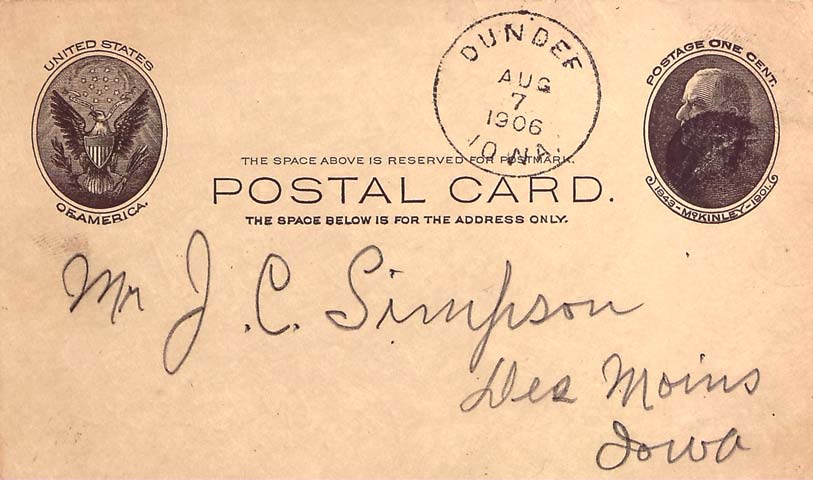 UNITED STATES
OF AMERICA.
DUNDEE
AUG
7
1906
IOWA.
POSTAGE ONE CENT.
1843-McKINLEY-1901.
THE SPACE ABOVE IS RESERVED FOR POSTMARK.
POSTAL CARD.
THE SPACE BELOW IS FOR THE ADDRESS ONLY.
Mr J. C. Simpson
Des Moins
Iowa